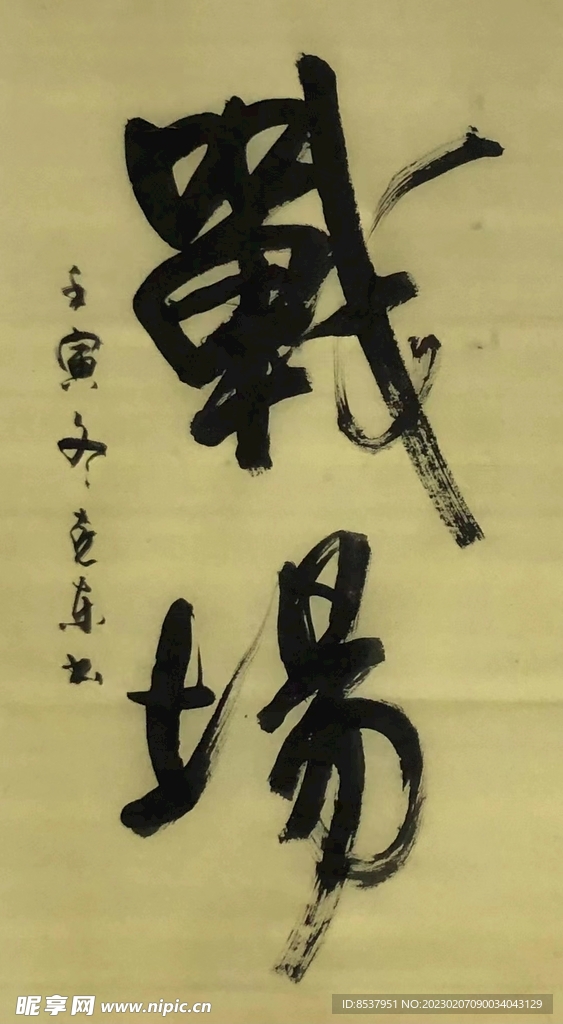 戰場
壬寅冬克東书
昵享网 www.nipic.cn
ID:8537951 NO:20230207090034043129